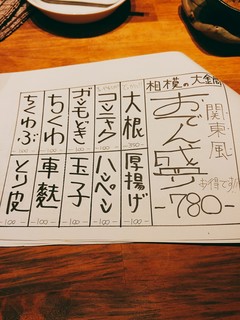 相模の大鍋
関東風
おでん盛
お得です!!
-780-
大根
-200-
コンニャク
-100-
がんもどき
-100-
ちくわ
-100-
ちくわぶ
-100-
厚揚げ
-100-
ハンペン
-100-
玉子
-100-
車麩
-100-
とり皮
-100-